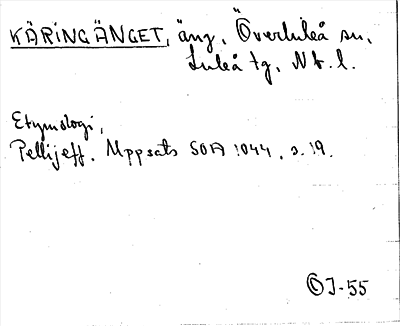 KÄRINGÄNGET, äng, Överluleå sn,
Luleå tg, Nb. l.
Etymologi,
Pellijeff. Uppsats SOA 1044, s. 19.
ÖJ-55